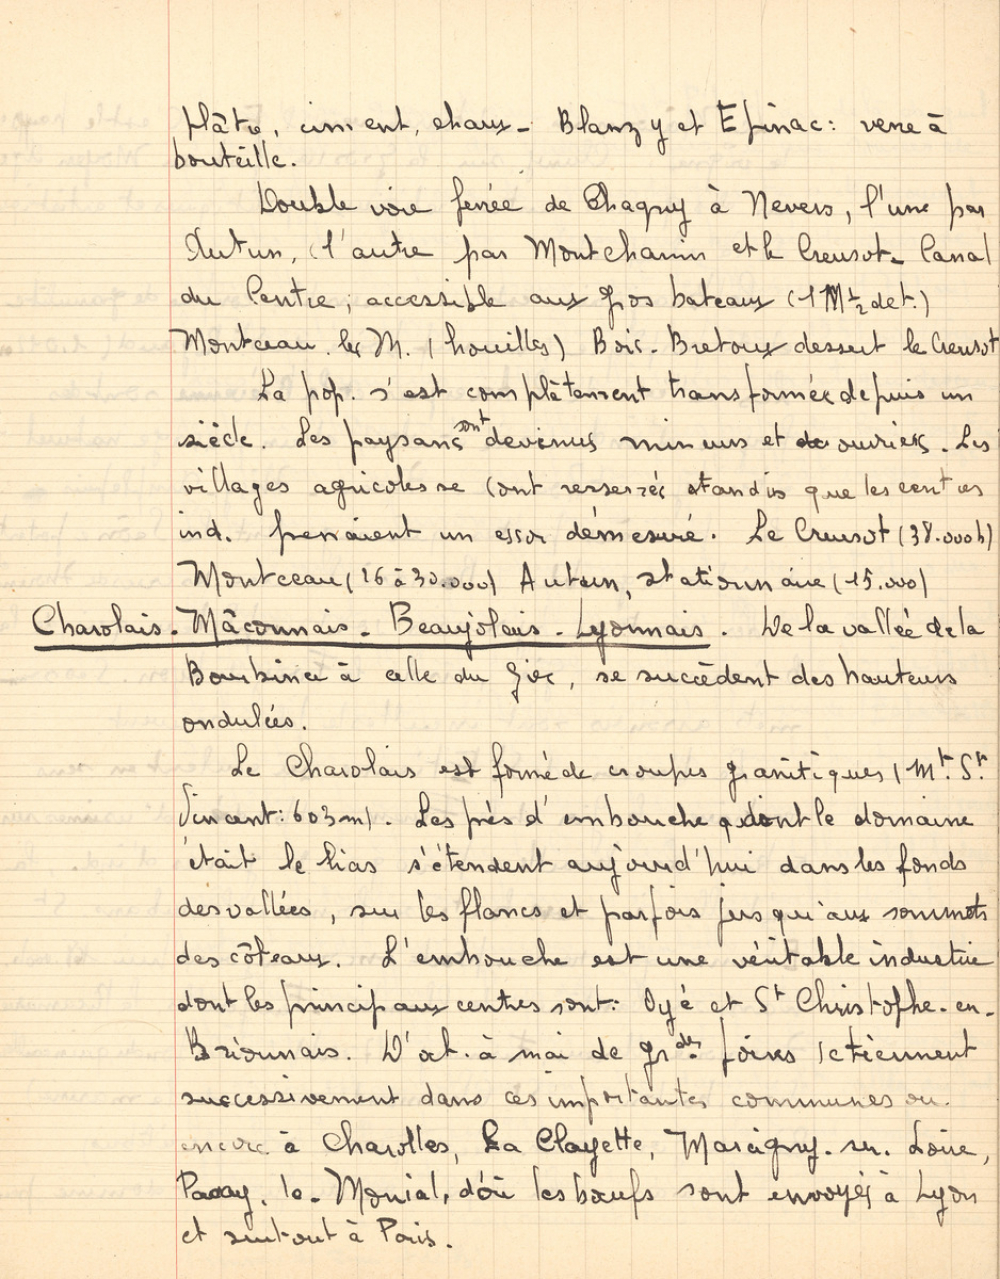 plâtre, ciment, chaux - Blanzy et Epinac: verre à
bouteille.
Double voie ferrée de Chagny à Nevers, l'une par
Autun, (l'autre par Montchanin et le Creusot - Canal
du Centre, accessible aux gros bateaux (1 M ½ de t.)
Montceau. les M. (houilles) Bois - Bretoux dessert le Creusot
La pop. s'est complètement transformée depuis un
siècle. Les paysans sont devenus mineurs et ouvriers. Les
villages agricoles se sont resserrés tandis que les centres
ind. prenaient un essor démesuré. Le Creusot (38.000 h)
Montceau (26 à 30.000) Autun, stationnaire (15.000)
Charolais - Mâconnais - Beaujolais - Lyonnais. De la vallée de la
Bourbince à celle du Gier, se succèdent des hauteurs
ondulées.
Le Charolais est formé de croupes granitiques (Mt. St.
Vincent: 603 m). Les prés d'embouche dont le domaine
était le lias s'étendent aujourd'hui dans les fonds
des vallées, sur les flancs et parfois jusqu'aux sommets
des côteaux. L'embouche est une véritable industrie
dont les principaux centres sont: Oyé et St Christophe-en-
Brionnais. D'oct. à mai de grdes foires se tiennent
successivement dans ces importantes communes ou
encore à Charolles, La Clayette, Marcigny-sur-Loire,
Paray-le-Monial, d'où les bœufs sont envoyés à Lyon
et surtout à Paris.